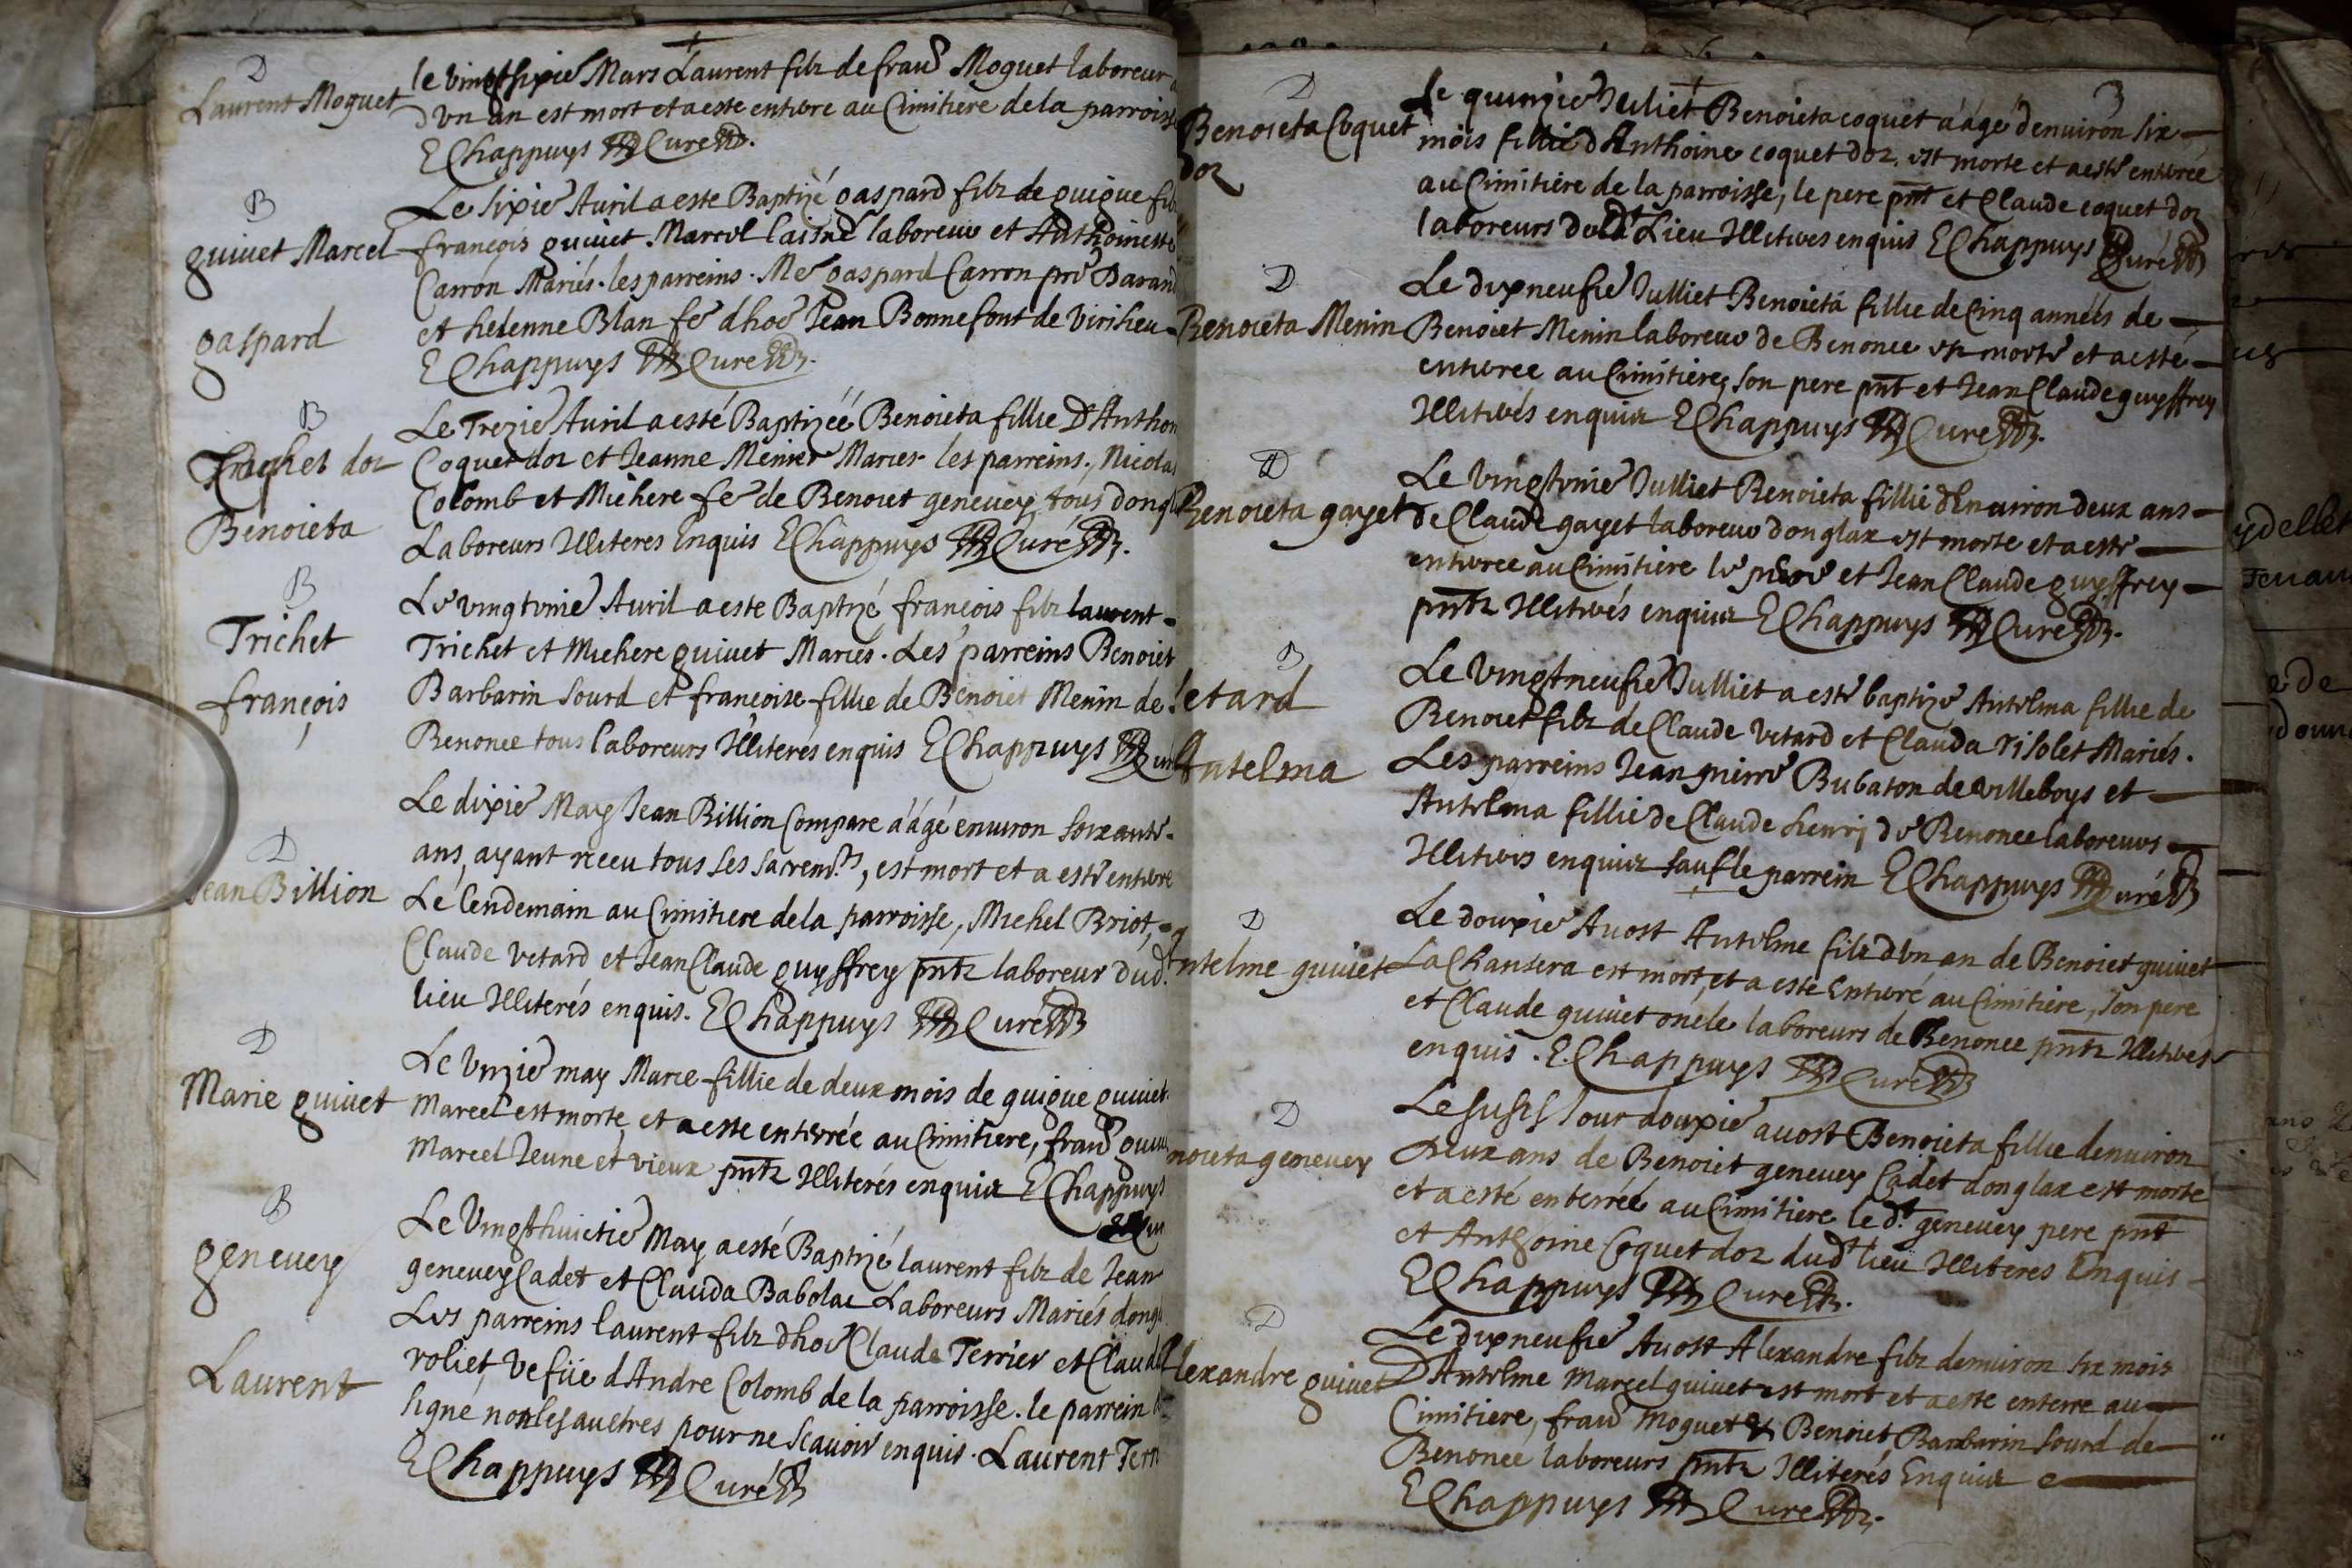 D
Laurent Moguet
le vingtsixie Mars Laurent filz de frans Moguet laboreur
dvn an est mort et a este enterre au Cimitiere de la parroisse
EChappuys Cure
B
guiuet Marcel
gaspard
Le sixie Auril a este Baptizé gaspard filz de guigue filz
françois guiuet Marcel laisné laboreur et Anthoinette
Carron Mariés. les parreins. Me gaspard Carron pre
et helenne Blan fe dhoe Jean Bonnefont de Virilieu
EChappuys Cure
B
dor
Benoieta
Le Trezie Auril a esté Baptizéé Benoieta fillie D'Anthon
Coquet dor et Jeanne Menier Maries les parreins. Nicolas
Colomb et Michere fe de Benoiet geneuey tous dongl
Laboreurs Illiteres Enquis EChappuys Curé
B
Trichet
françois
Le vingtvnie Auril a este Baptizé françois filz laurent
Trichet et Michere guiuet Mariés. Les parreins Benoiet
Barbarin sourd et françoise fillie de Benoiet Menin de
Benonce tous laboreurs Illiterés enquis EChappuys
D
Jean Billion
Le dixie May Jean Billion Compare ààgé enuiron soixante
ans, ayant receu tous ses sacremts, est mort et a esté enterre
Le lendemain au Cimitiere de la parroisse, Michel Briot,
Claude vetard et Jean Claude guyffrey pntz laboreur dud.
lieu Illiterés enquis. EChappuys Curé
D
Marie guiuet
Le Vnzie may Marie fillie de deux mois de guigue guiuet
Marcel est morte, et a este enterrée au Cimitiere, frans guiu
Marcel Jeune et vieux pntz Illiterés enquiz EChappuys
B
geneuey
Laurent
Le Vingthuictie May a esté Baptizé laurent filz de Jean
geneuey Cadet et Clauda Babolat Laboreurs Mariés dongl
Les parreins laurent filz dhoe Claude Terrier et Claud
roliet, vefue dAndre Colomb de la parroisse. le parrein
signé non les aultres pour ne scauoir enquis. Laurent Terr
EChappuys Curé
D
Benoieta Coquet
dor
Le quinzie Julliet Benoieta coquet ààgé denuiron six
mois fillie dAnthoine coquet dor, est morte et a esté enterée
au Cimitiere de la parroisse, le pere pnt et Claude coquet dor
laboreurs dudt Lieu Illiteres enquis EChappuys Curé
D
Benoieta Menin
Le dixneufie Julliet Benoieta fillie de Cinq années de
Benoiet Menin laboreur de Benonce est morte et a esté
enterree au Cimitiere, son pere pnt et Jean Claude guyffrey
Illiterés enquiz EChappuys Cure
D
Benoieta gayet
Le Vingtvnie Julliet Benoieta fillie dEnuiron deux ans
de Claude gayet laboreur donglax est morte et a este
enterree au Cimitiere le pere et Jean Claude guyffrey
pntz Illiterés enquiz EChappuys Cure
B
Vetard
Antelma
Le Vingtneufie Julliet a este baptize Antelma fillie de
Benoiet filz de Claude vetard et Clauda risolet Mariés.
Les parreins Jean pierre Bubaton de villeboys et
Antelma fillie de Claude henrj de Benonce laboreurs
Illiteres enquiz sauf le parrein EChappuys Curé
D
Antelme guiuet
Le douzie Aoust Antelme filz dvn an de Benoiet guiuet
La Chansera est mort, et a esté Enterré au Cimitiere, son pere
et Claude guiuet oncle laboreurs de Benonce pntz Illiterés
enquis. E.Chappuys Curé
D
Benoieta geneuey
Le susds Jour douzie auost Benoieta fillie denuiron
deux ans de Benoiet geneuey Cadet donglax est morte
et a esté enterréé au Cimitiere le dt geneuey pere pnt
et Anthoine Coquet dor dudt lieu Illiteres Enquis
EChappuys Cure
D
Alexandre guiuet
Le dixneufie Auost Alexandre filz denuiron six mois
D'Antelme Marcel guiuet est mort et a este enterre au
Cimitiere, frans Moguet & Benoiet Barbarin sourd de
Benonce laboreurs pntz Illiterés Enquiz
EChappuys Cure